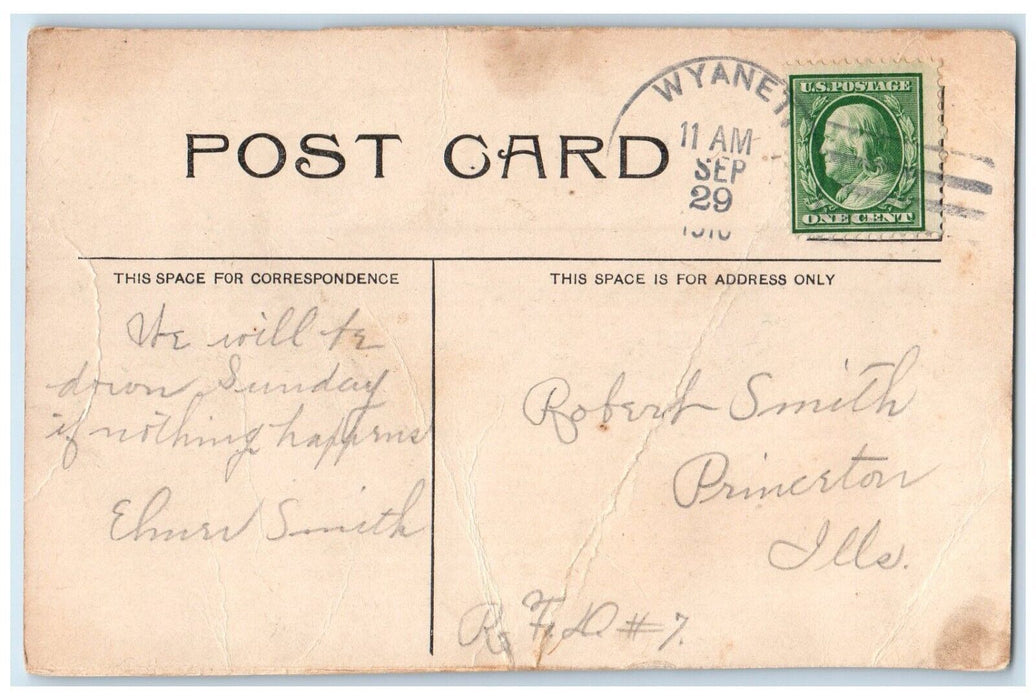 WYANET
11 AM
SEP
29
1910
U.S. POSTAGE
ONE CENT
POST CARD
THIS SPACE FOR CORRESPONDENCE
THIS SPACE IS FOR ADDRESS ONLY
We will be
down Sunday
if nothing happens
Elmer Smith
Robert Smith
Princeton
Ills.
R. F. D. #7.